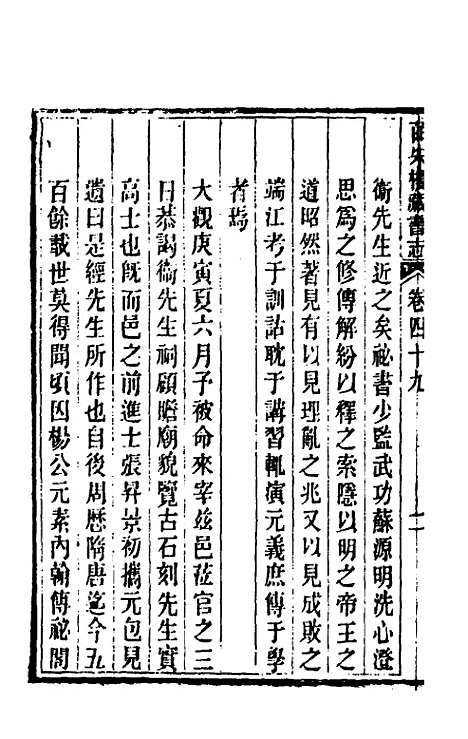 皕宋樓藏書志 卷四十九 二
衞先生近之矣祕書少監武功蘇源明洗心澄
思爲之修傳解紛以釋之索隱以明之帝王之
道昭然著見有以見理亂之兆又以見成敗之
端江考于訓詁耽于講習輒演元義庶傳于學
者焉
大觀庚寅夏六月子被命來宰兹邑莅官之三
日恭謁衞先生祠顧瞻廟貌覽古石刻先生實
高士也既而邑之前進士張昇景初攜元包見
遺曰是經先生所作也自後周歴隋唐迄今五
百餘載世莫得聞頃因楊公元素內翰傳祕閣